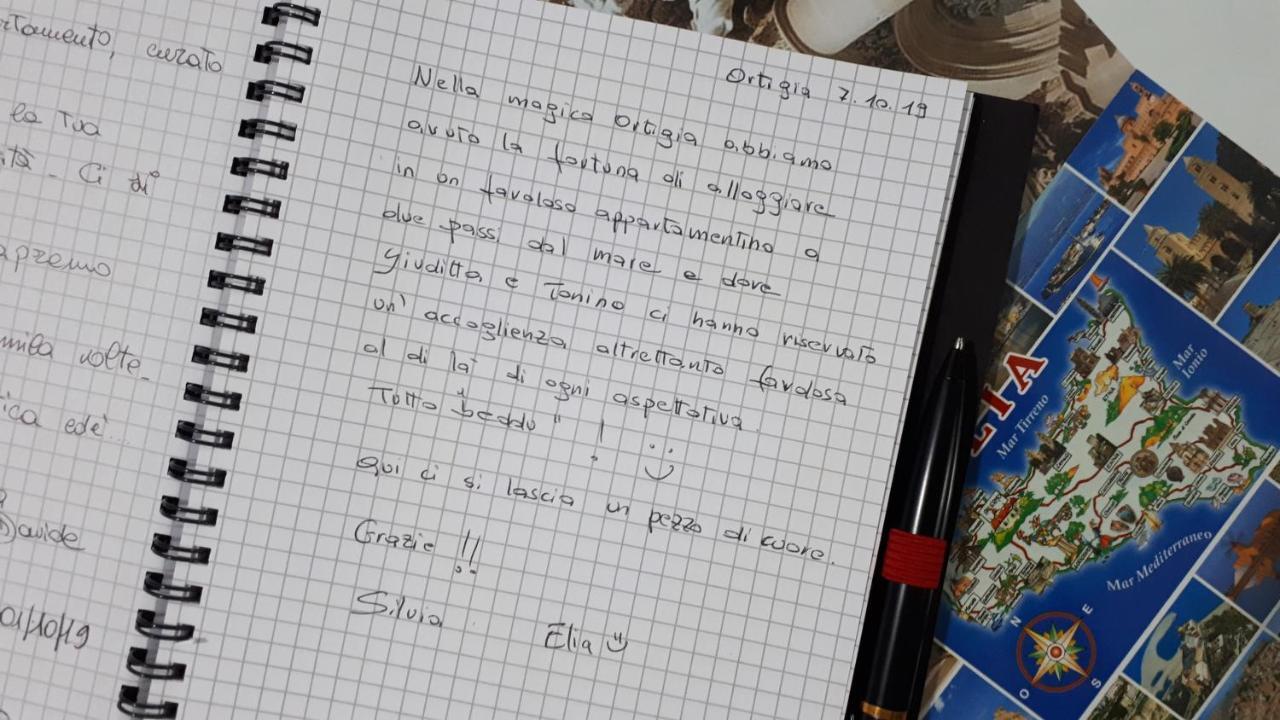 rtamento, curato
la Tua
ità - Ci di
apremo
mila volte_
ica ed è...
Davide
Ortigia 7.10.19
Nella magica Ortigia abbiamo
avuto la fortuna di alloggiare
in un favoloso appartamentino a
due passi dal mare e dove
Giuditta e Tonino ci hanno riservato
un' accoglienza altrettanto favolosa
al di là di ogni aspettativa.
Tutto beddu" ! :)
Qui ci si lascia un pezzo di cuore.
Grazie !!
Silvia Elia
LIA
Mar Tirreno
Mar Ionio
Mar Mediterraneo
N
E
S
O